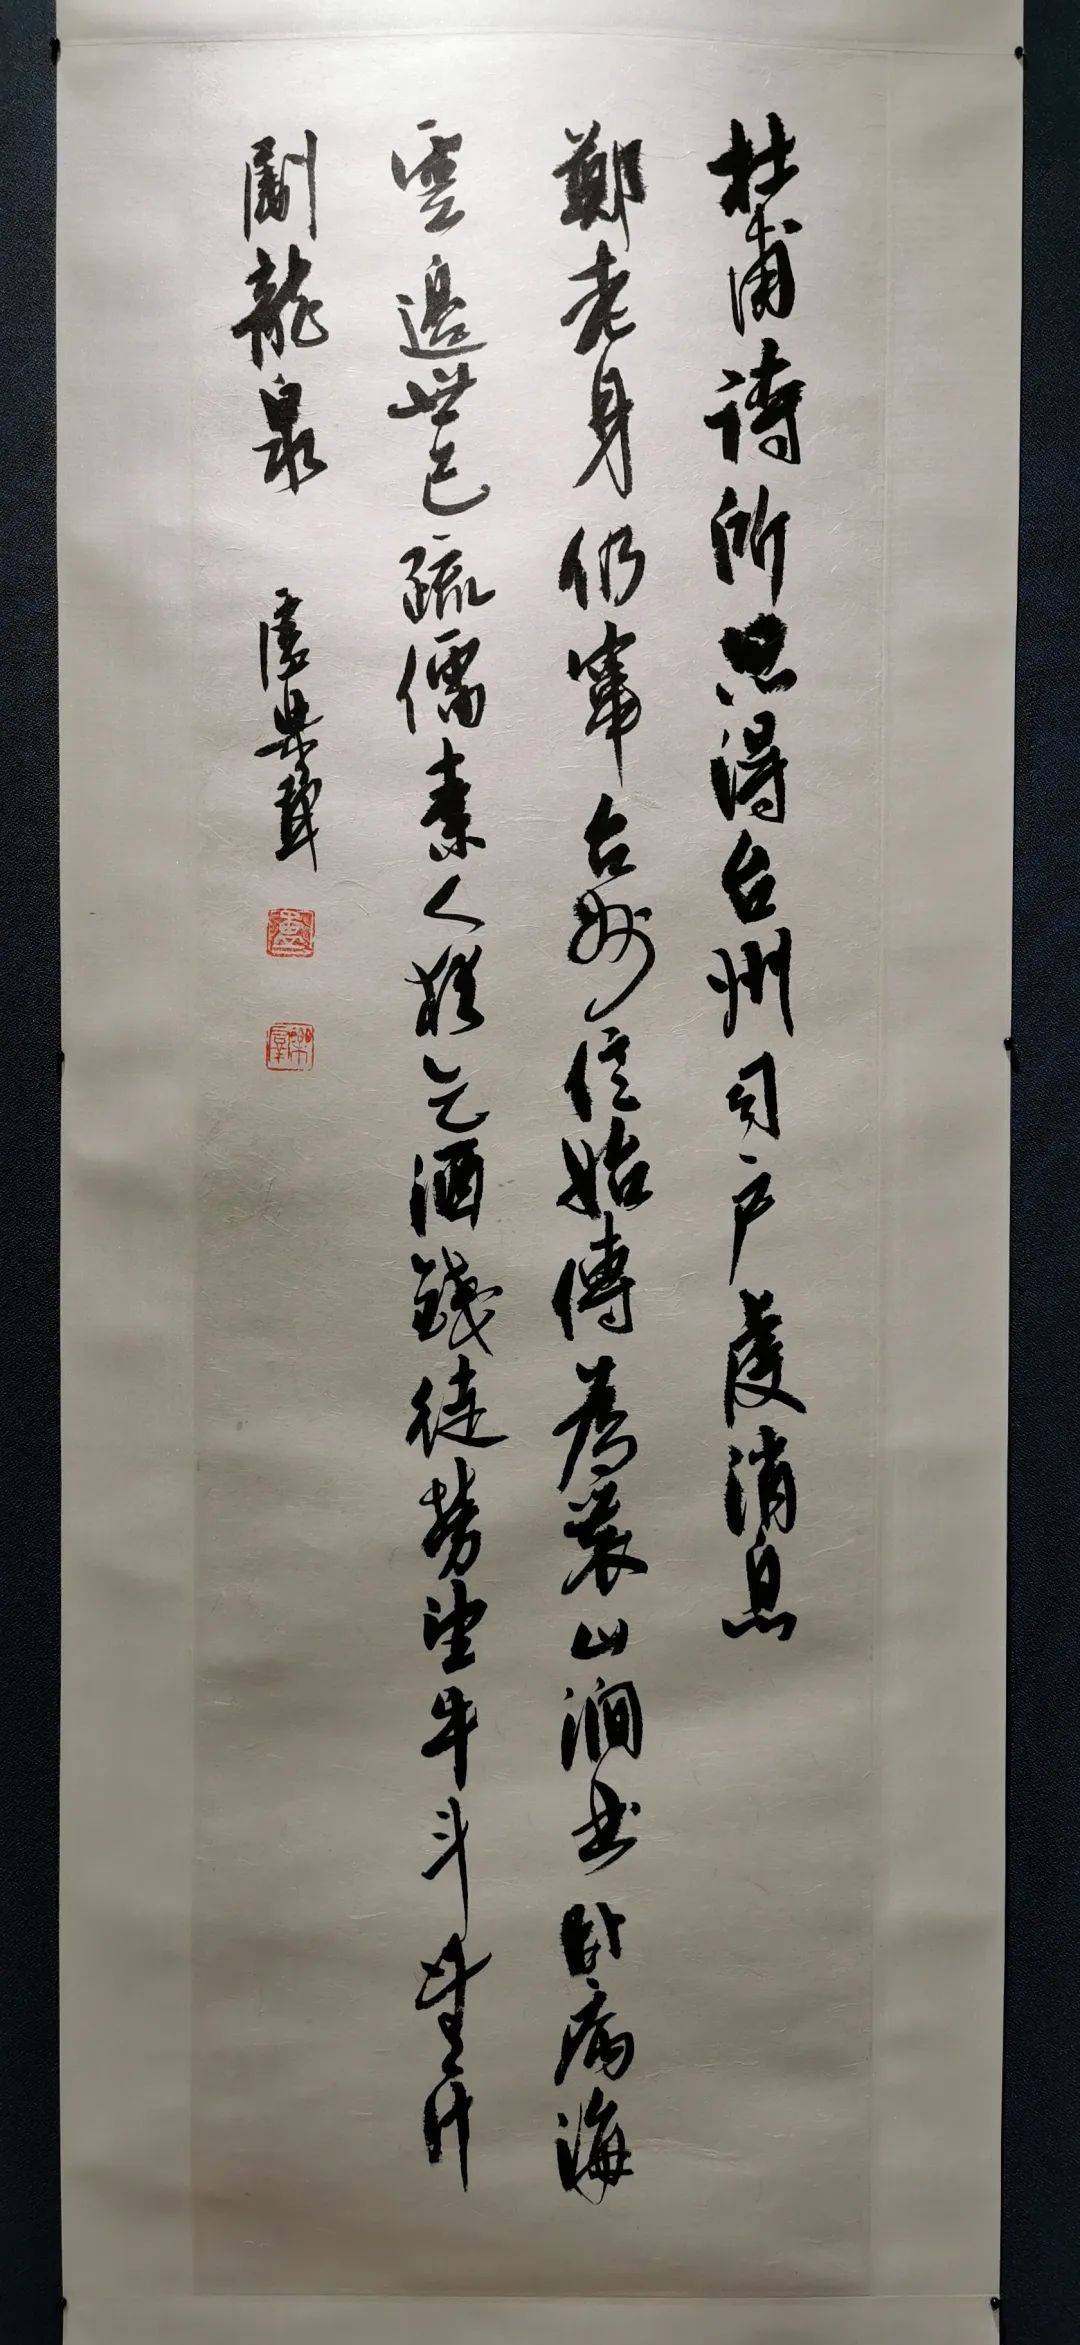 杜甫詩所思得台州司户虔消息
鄭老身仍竄台州信始傳為農山澗曲卧病海
雲邊世已疏儒素人猶乞酒錢徒勞望牛斗無計
劚龍泉 盧樂群
盧
樂群